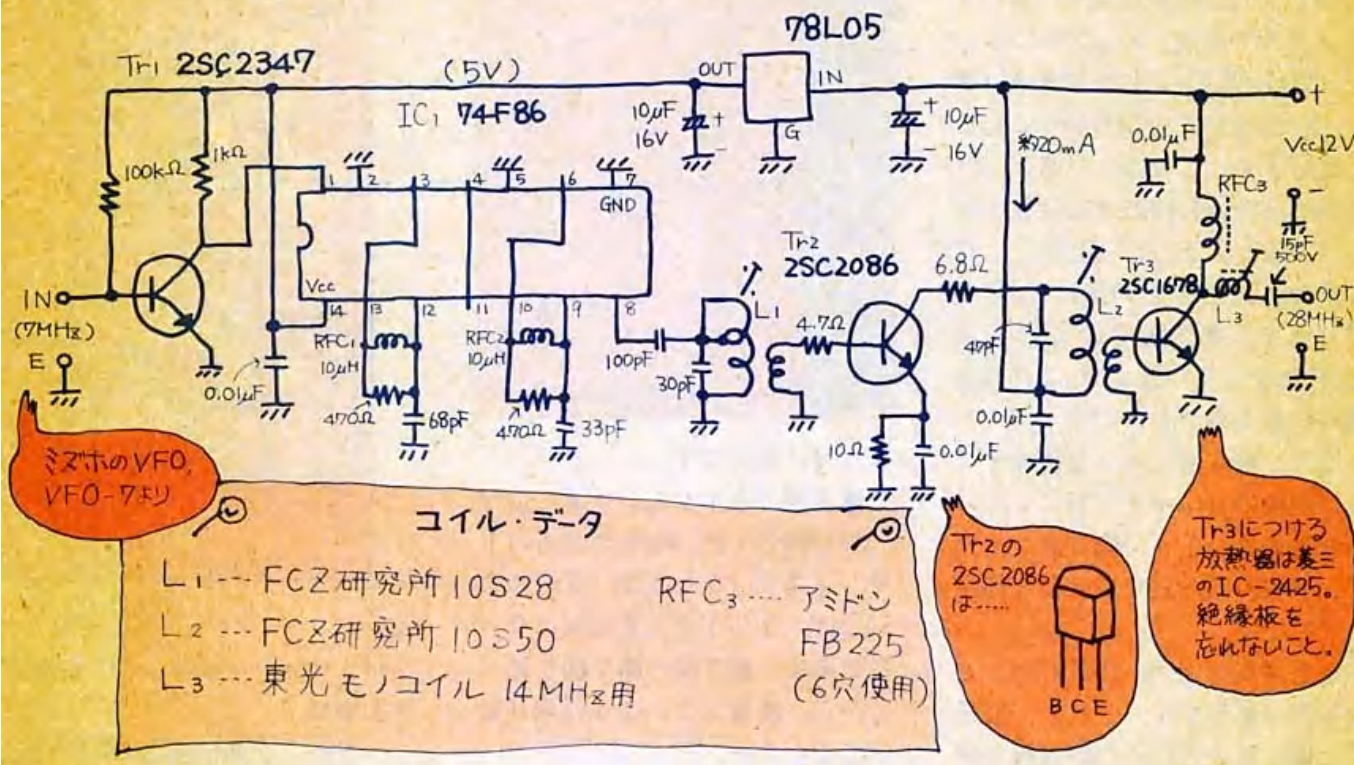 78L05
Tr1 2SC2347
(5V)
OUT
IN
IC1 74F86
10μF
16V
+
-
G
+
10μF
-
16V
*920mA
0.01μF
+
Vcc12V
-
RFC3
100kΩ
1kΩ
1
2
3
4
5
6
7
GND
Vcc
14
13
12
11
10
9
8
IN
(7MHz)
E
RFC1
10μH
RFC2
10μH
0.01μF
470Ω
68pF
470Ω
33pF
100pF
30pF
L1
Tr2
2SC2086
4.7Ω
6.8Ω
10Ω
0.01μF
0.01μF
L2
Tr3
2SC1678
15pF
500V
L3
OUT
(28MHz)
E
ミズホのVFO,
VFO-7より
コイル・データ
L1 … FCZ研究所 10S28
L2 … FCZ研究所 10S50
L3 … 東光モノコイル 14MHz用
RFC3 …. アミドン
FB225
(6穴使用)
Tr2の
2SC2086
は……
B C E
Tr3につける
放熱器は菱三
のIC-2425。
絶縁板を
忘れないこと。